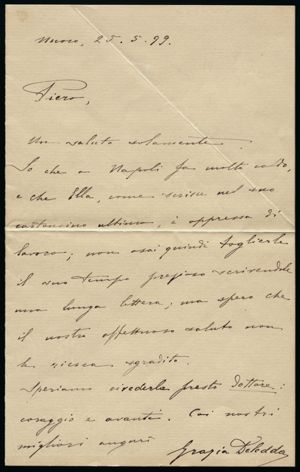 Nuoro, 25. 5. 99.
Piero,
Un saluto solamente.
So che a Napoli fa molto caldo,
e che Ella, come scrisse nel suo
cartoncino ultimo, è oppressa di
lavoro; non osai quindi toglierle
il suo tempo prezioso scrivendole
una lunga lettera; ma spero che
il nostro affettuoso saluto non
le riesca sgradito.
Speriamo rivederla presto dottore:
coraggio e avanti. Coi nostri
migliori auguri
Grazia Deledda